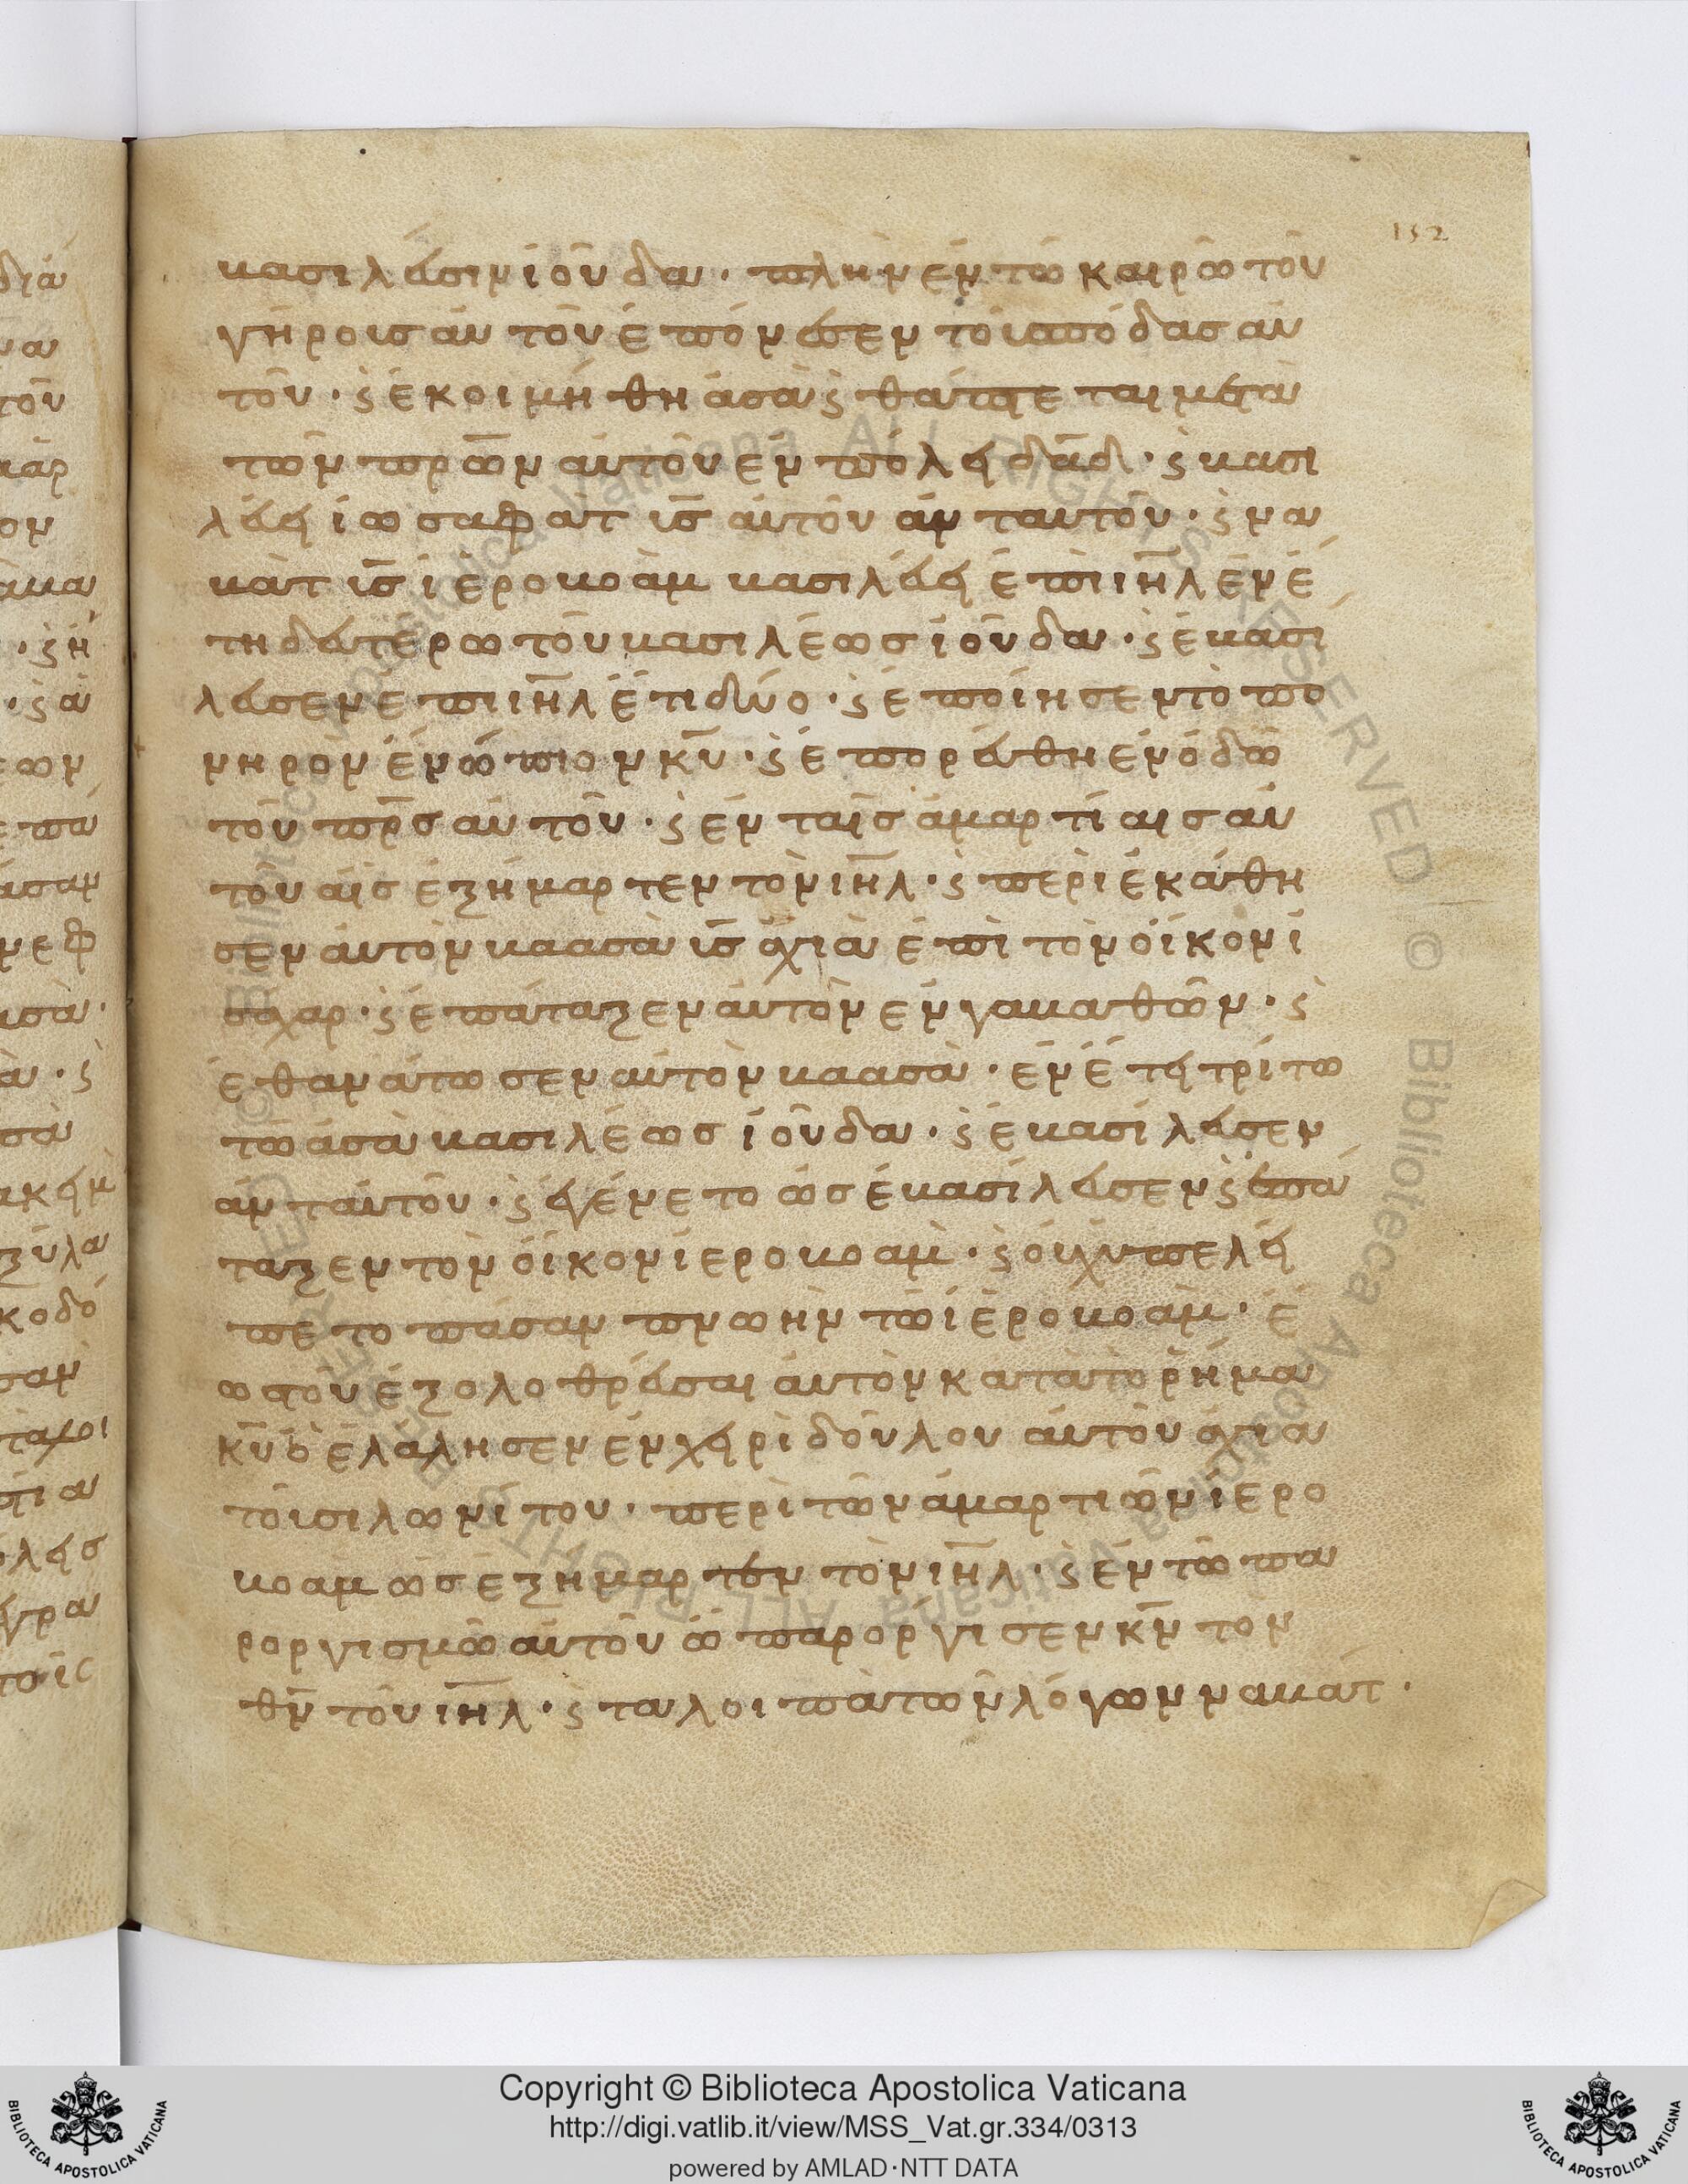 152
βασιλεύσιν ἰοῦδα · πλὴν ἐν τῶ καιρῶ τοῦ
γήρους αὐτοῦ ἐπόνεσεν τοὺς πόδας αὐ
τοῦ · ϛ ἐκοιμήθη ἀσὰ ϛ θάπτεται μετὰ
τῶν πρω̅ν αὐτοῦ ἐν πόλει δα̅δ · ϛ βασι
λεύει ἰωσαφὰτ υἱ̅σ αὐτοῦ ἀντ αὐτοῦ · ϛ να
βὰτ υἱ̅σ ἱεροβοὰμ βασιλεύει ἐπι ιη̅λ ἐν ἔ
τη δευτέρω τοῦ βασιλέωσ ἰοῦδα · ϛ ἐβασι
λευσεν ἐπι ιη̅λ ἔτι δύο · ϛ ἐποίησεν τὸ πο
νηρὸν ἐνώπιον κυ̅ · ϛ ἐπορεύθη ἐν ὁδῶ
τοῦ πρ̅σ αὐτοῦ · ϛ ἐν ταῖσ ἁμαρτίαισ αὐ
τοῦ αἷσ ἐξήμαρτεν τὸν ιη̅λ · ϛ περιεκάθη
σεν αὐτὸν βαασὰ υἱ̅σ ἀχιὰ ἐπὶ τὸν οἶκον ἰ
σαχαρ · ϛ ἐπάταξεν αὐτὸν ἐν γαβαθῶν · ϛ
ἐθανάτωσεν αὐτὸν βαασὰ · ἐν ἔτει τρίτω
τῶ ἀσὰ βασιλέωσ ἰοῦδα · ϛ ἐβασίλευσεν
ἀντ αὐτοῦ · ϛ ἐγένετο ὡσ ἐβασίλευσεν ϛ ἐπά
ταξεν τὸν οἶκον ἱεροβοαμ · ϛ οὐχ ὑπελεί
πετο πάσαν πνωὴν τῶ ἱεροβοαμ · ἕ
ωσ τοῦ ἐξολοθρεῦσαι αὐτὸν κατὰ τὸ ρῆμα
κυ̅ ὃ ἐλάλησεν ἐν χειρὶ δούλου αὐτοῦ ἀχια
τοῦ σιλωνίτου · περὶ τῶν ἁμαρτιῶν ἱερο
βοαμ ὡσ ἐξήμαρτεν τὸν ιη̅λ · ϛ ἐν τῶ πα
ροργισμῶ αὐτοῦ ὧ παρόργισεν κν̅ τὸν
θν̅ τοῦ ιη̅λ · ϛ τα λοιπὰ τῶν λόγων ναβάτ ·
διά
Copyright © Biblioteca Apostolica Vaticana
http://digi.vatlib.it/view/MSS_Vat.gr.334/0313
powered by AMLAD·NTT DATA
BIBLIOTECA APOSTOLICA VATICANA
BIBLIOTECA APOSTOLICA VATICANA